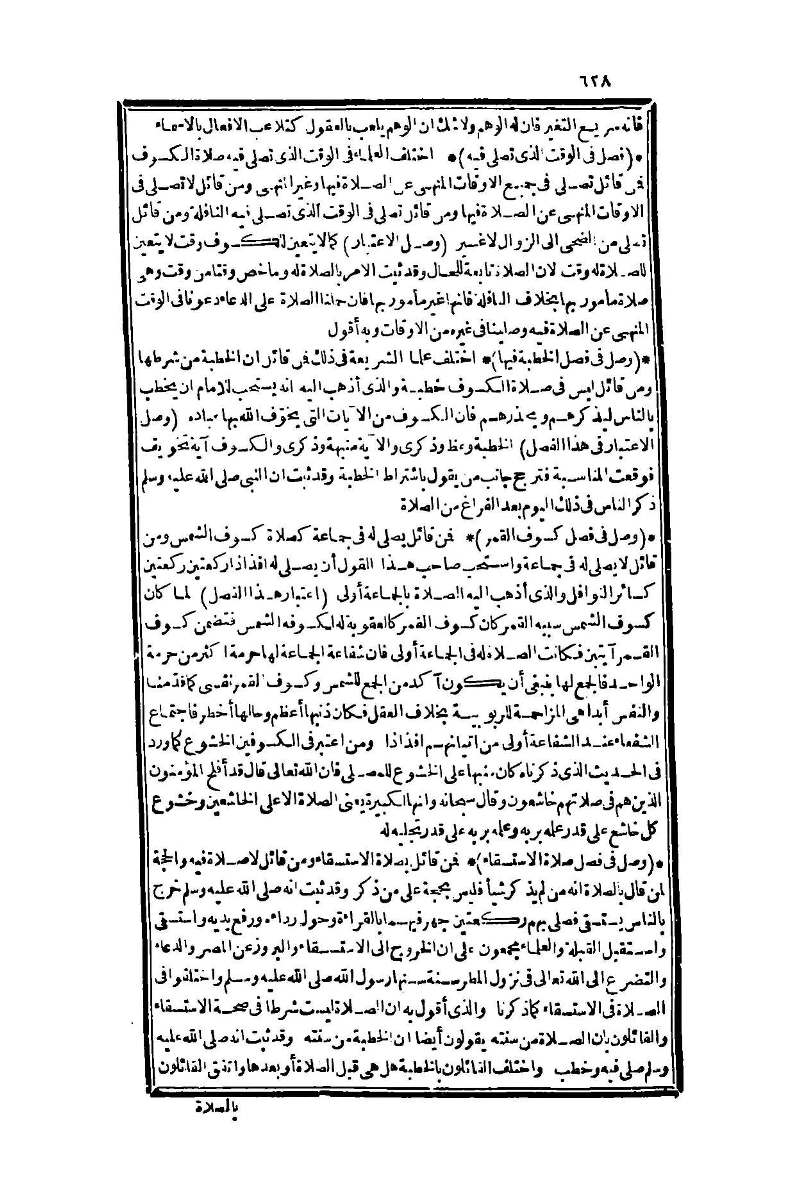 ٦٢٨
فانه سريع التغير فان له الوهم ولا شك ان الوهم يلعب بالعقول كتلاعب الافعال بالاسماء
*(فصل فى الوقت الذى تصلى فيه)* اختلف العلماء فى الوقت الذى تصلى فيه صلاة الكسوف
فمن قائل تصلى فى جميع الاوقات المنهى عن الصلاة فيها وغير المنهى ومن قائل لا تصلى فى
الاوقات المنهى عن الصلاة فيها ومن قائل تصلى فى الوقت الذى تصلى فيه النافلة ومن قائل
تصلى من الضحى الى الزوال لاغير (وصل الاعتبار) كما لا يتعين للكسوف وقت لا يتعين
للصلاة له وقت لان الصلاة تابعة للحال وقد ثبت الامر بالصلاة له وما خص وقتا من وقت وهى
صلاة مأمور بها بخلاف النافلة فانها غير مأمور بها فان حملنا الصلاة على الدعاء دعونا فى الوقت
المنهى عن الصلاة فيه وصلينا فى غيره من الاوقات وبه أقول
*(وصل فى فصل الخطبة فيها)* اختلف علماء الشريعة فى ذلك فمن قائل ان الخطبة من شرطها
ومن قائل ليس فى صلاة الكسوف خطبة والذى أذهب اليه انه يستحب للامام ان يخطب
بالناس ليذكرهم ويحذرهم فان الكسوف من الآيات التى يخوّف الله بها عباده (وصل
الاعتبار فى هذا الفصل) الخطبة وعظ وذكرى والآية منبهة وذكرى والكسوف آية تخويف
فوقعت المناسبة فترجح جانب من يقول باشتراط الخطبة وقد ثبت ان النبى صلى الله عليه وسلم
ذكر الناس فى ذلك اليوم بعد الفراغ من الصلاة
*(وصل فى فصل كسوف القمر)* فمن قائل يصلى له فى جماعة كصلاة كسوف الشمس ومن
قائل لا يصلى له فى جماعة واستحب صاحب هذا القول أن يصلى له افذاذا ركعتين ركعتين
كسائر النوافل والذى أذهب اليه الصلاة بالجماعة أولى (اعتبار هذا الفصل) لما كان
كسوف الشمس سببه القمر كان كسوف القمر كالعقوبة له لكسوفه الشمس فتضمن كسوف
القمر آيتين فكانت الصلاة له فى الجماعة أولى فان شفاعة الجماعة لها حرمة اكثر من حرمة
الواحد فالجمع لها ينبغى أن يكون آكد من الجمع للشمس وكسوف القمر نفسى كما قدمنا
والنفس أبدا هى المزاحمة للربوبية بخلاف العقل فكان ذنبها أعظم وحالها أخطر فاجتماع
الشفعاء عند الشفاعة أولى من اتيانهم افذاذا ومن اعتبر فى الكسوفين الخشوع كما ورد
فى الحديث الذى ذكرناه كان منبها على الخشوع للمصلى فان الله تعالى قال قد أفلح المؤمنون
الذين هم فى صلاتهم خاشعون وقال سبحانه وانها لكبيرة يعنى الصلاة الا على الخاشعين وخشوع
كل خاشع على قدر علمه بربه وعلمه بربه على قدر تجليه له
*(وصل فى فصل صلاة الاستسقاء)* فمن قائل بصلاة الاستسقاء ومن قائل لا صلاة فيه والحجة
لمن قال بالصلاة انه من لم يذكر شيأ فليس بحجة على من ذكر وقد ثبت انه صلى الله عليه وسلم خرج
بالناس يستسقى فصلى بهم ركعتين جهر فيهما بالقراءة وحول رداءه ورفع يديه واستسقى
واستقبل القبلة والعلماء مجمعون على ان الخروج الى الاستسقاء والبروز عن المصر والدعاء
والتضرع الى الله تعالى فى نزول المطر سنة سنها رسول الله صلى الله عليه وسلم واختلفوا فى
الصلاة فى الاستسقاء كما ذكرنا والذى أقول به ان الصلاة ليست شرطا فى صحة الاستسقاء
والقائلون بان الصلاة من سنته يقولون أيضا ان الخطبة من سنته وقد ثبت انه صلى الله عليه
وسلم صلى فيه وخطب واختلف القائلون بالخطبة هل هى قبل الصلاة أو بعدها واتفق القائلون
بالصلاة